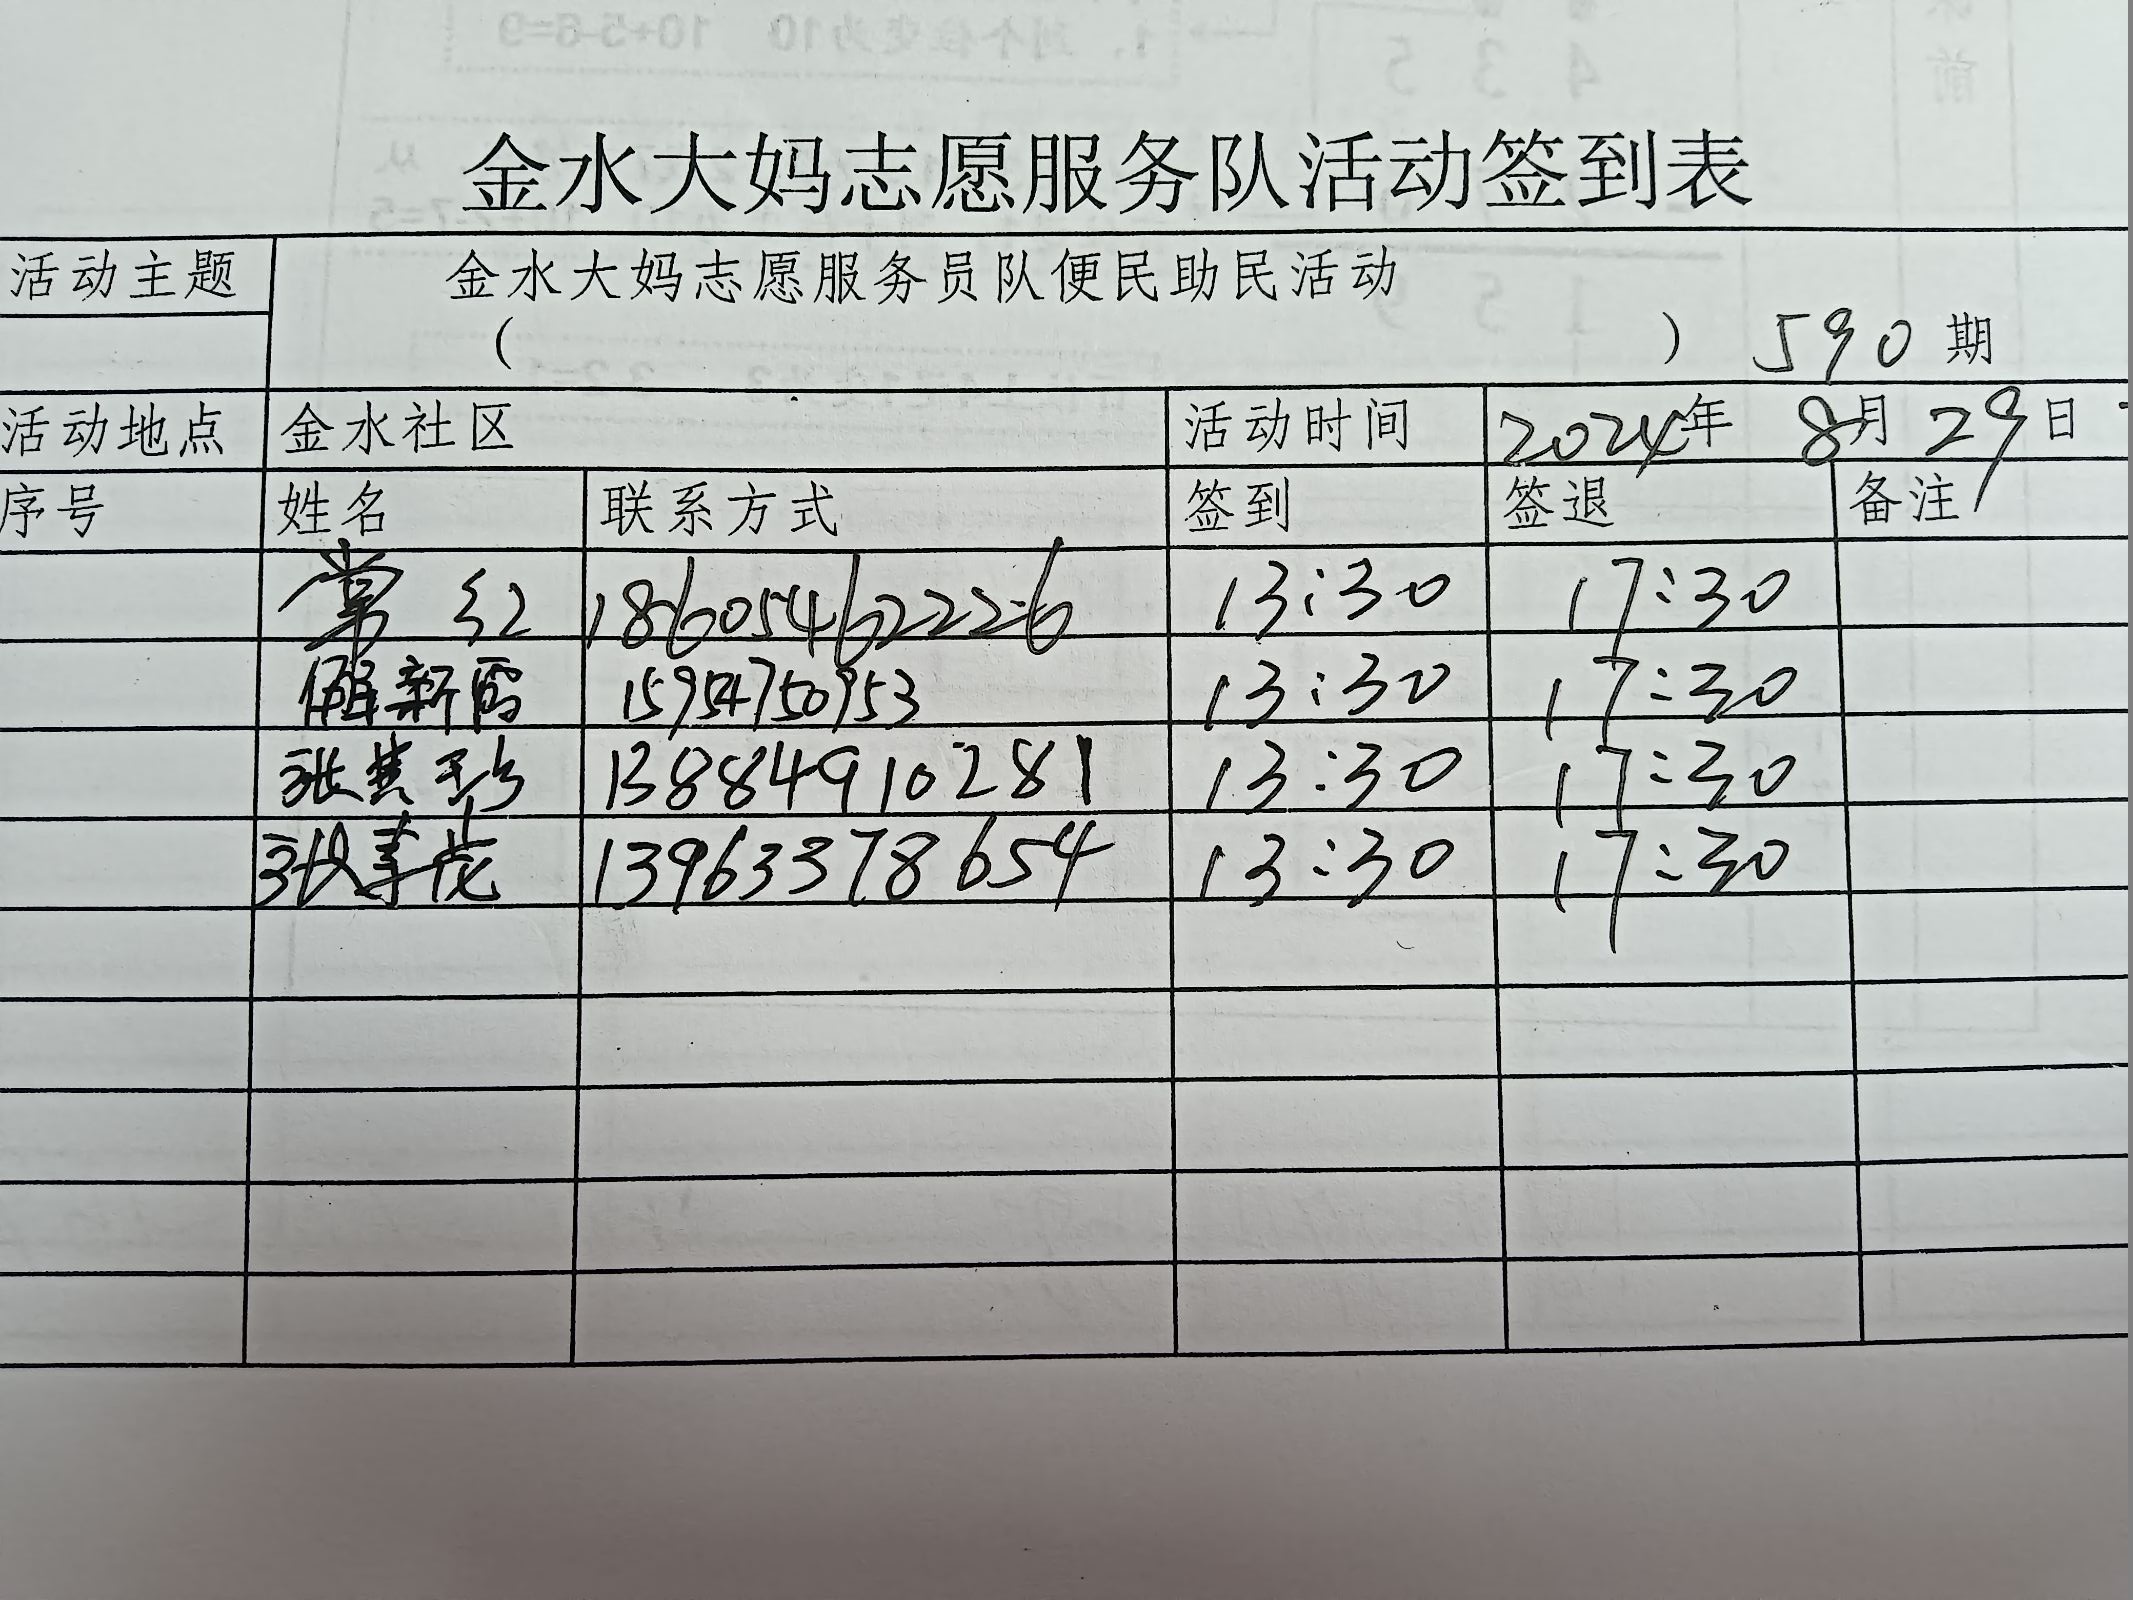 金水大妈志愿服务队活动签到表
活动主题 金水大妈志愿服务员队便民助民活动
( ) 590期
活动地点 金水社区 活动时间 2024年 8月29日
序号 姓名 联系方式 签到 签退 备注
常红 18605462226 13:30 17:30
新霞 15954750953 13:30 17:30
张 珍 13884910281 13:30 17:30
张 花 13963378654 13:30 17:30